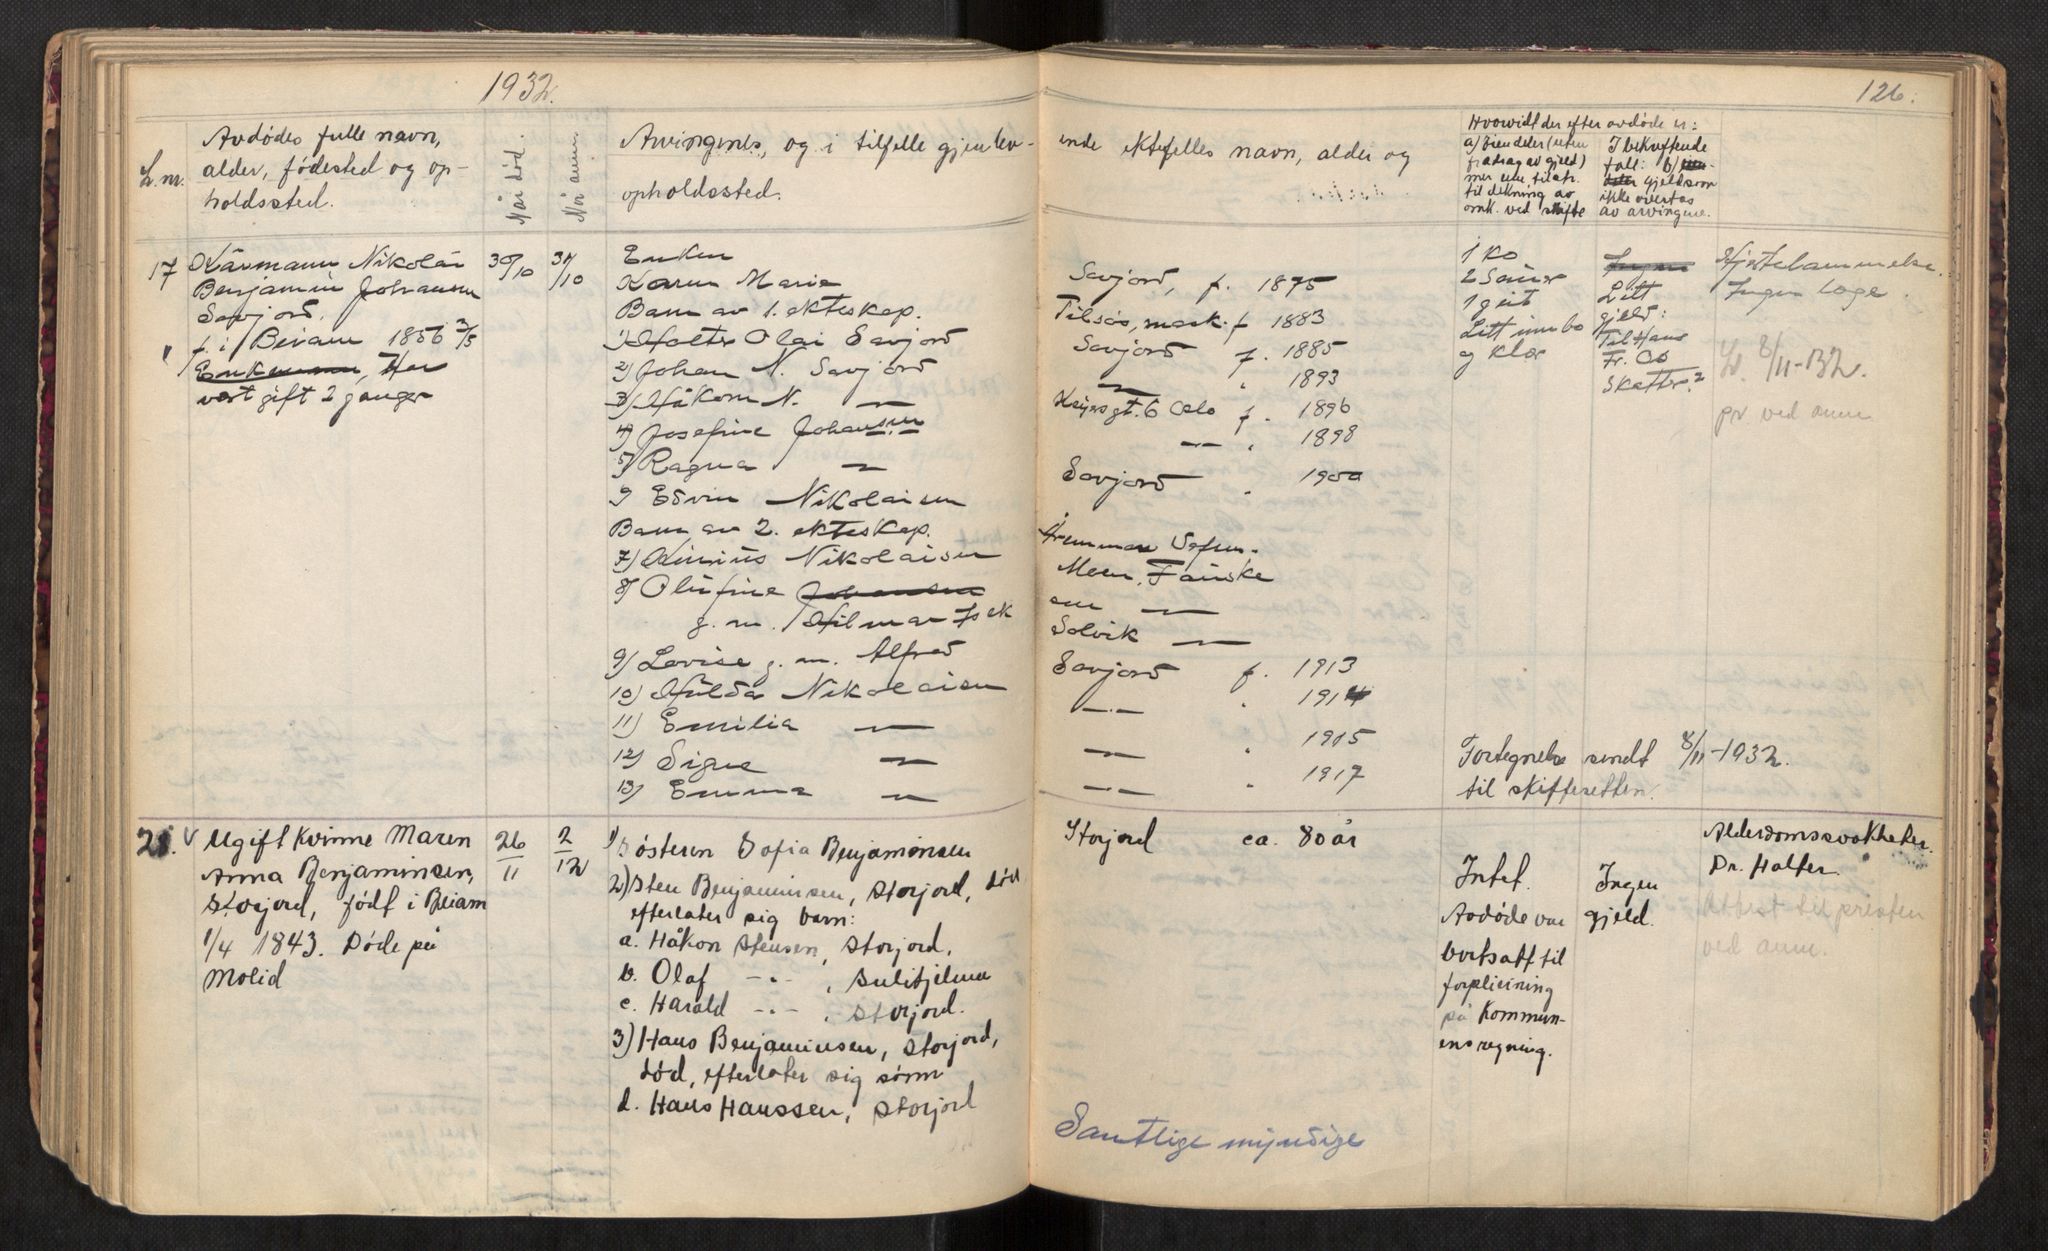 1932.
126.
L.nr.
Avdødes fulle navn,
alder, fødested og op-
holdssted.
Når død.
Når anm.
Arvingenes, og i tilfelle gjenlev-
opholdssted.
ende ektefelles navn, alder og
Hvorvidt der efter avdøde er:
a) Eiendeler (uten
fradrag av gjeld)
mer enn tilstr.
til dekning av
omk. ved skifte
I bekreftende
fall: b)
gjeld som
ikke overtas
av arvingene.
17
Kårmann Nikolai
Benjamin Johansen
Savjord.
f. i Beiarn 1856 3/5
Enkemann, Har
vært gift 2 ganger
30/10
31/10
Enken
Karen Marie
Barn av 1. ekteskap.
1) Halter Olai Savjord
2) Johan N. Savjord
3) Håkon N. —
4) Josefine Johansen
5) Ragna —
Edvin Nikolaisen
Barn av 2. ekteskap.
7) Nikolaisen
8) Olufine Johansen
g. m. Hilmar Isak
9) Lovise g. m. Alfred
10) Hulda Nikolaisen
11) Emilia —
12) Signe —
13) Emma —
Savjord, f. 1875
f 1883
Savjord f. 1885
— " 1893
Keysersgt. 6 Oslo f. 1896
—"— " 1898
Savjord " 1900
Moen, Fauske
—
Solvik —
Savjord f. 1913
—"— " 1914
— " 1915
—"— " 1917
1 ko
2 Sauer
1 geit
Litt innbo
og klær
Ingen
Litt
gjeld:
Til Hans
Fr. Os
Skatter?
Hjertelammelse.
Ingen læge.
8/11-32.
pr ved anm
Fortegnelse sendt 8/11-1932.
til skifteretten.
Ugift kvinne Maren
Anna Benjaminsen,
Storjord, født i Beiarn
1/4 1843. Døde på
Molid
26/11
2/12
1) Søsteren Sofia Benjaminsen
2) Sten Benjaminsen, Storjord, død
efterlater sig barn:
a. Håkon Stensen, Storjord.
b. Olaf —"—, Sulitjelma
c. Harald —"—, Storjord.
3) Hans Benjaminsen, Storjord,
død, efterlater sig sønn
d. Hans Hanssen, Storjord
Storjord ca. 80 år
Samtlige myndige
Intet.
Avdøde var
bortsatt til
forpleining
på Kommun-
ens regning.
Ingen
gjeld.
Alderdomssvakheter.
Dr. Halter.
Attest til presten
ved anm.